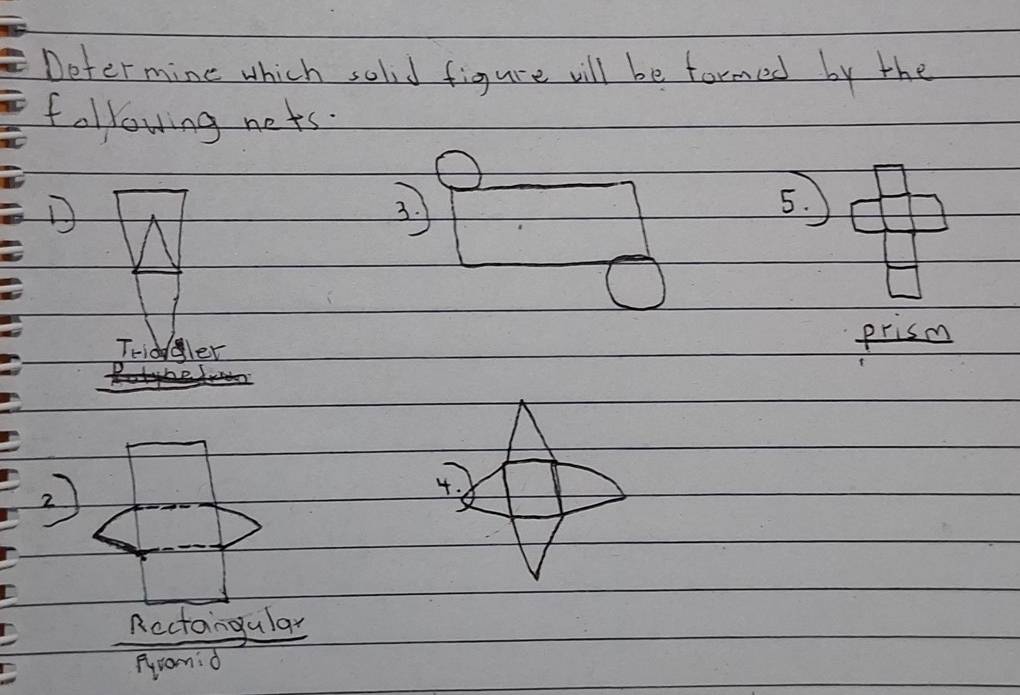 Determine which solid figure will be formed by the
following nets.
1)
3.)
5.)
prism
2)
4.)
Rectangular
Pyramid